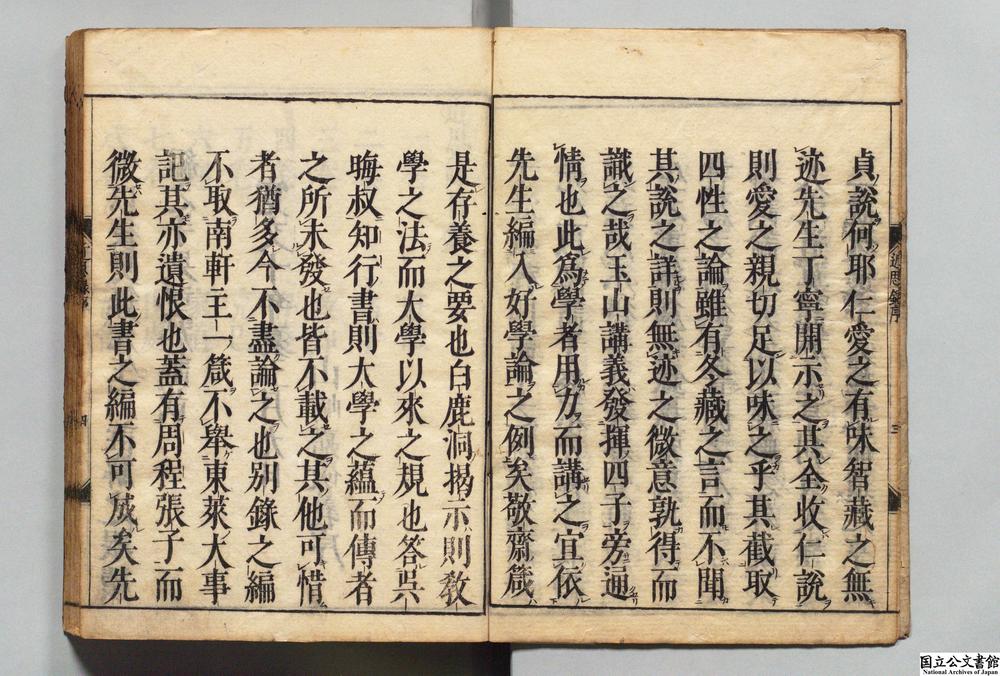 貞說何耶仁愛之有味智藏之無
迹先生丁寧開示之其全收仁說
則愛之親切足以味之乎其截取
四性之論雖有冬藏之言而不聞
其說之詳則無迹之微意孰得而
識之哉玉山講義發揮四子旁通
情也此爲學者用力而講之宜依
先生編入好學論之例矣敬齋箴
是存養之要也白鹿洞揭示則教
學之法而大學以來之規也答吳
晦叔知行書則大學之蘊而傳者
之所未發也皆不載之其他可惜
者猶多今不盡論之也別錄之編
不取南軒主一箴不舉東萊大事
記其亦遺恨也蓋有周程張子而
微先生則此書之編不可成矣先
近思錄序
三
四
国立公文書館
National Archives of Japan